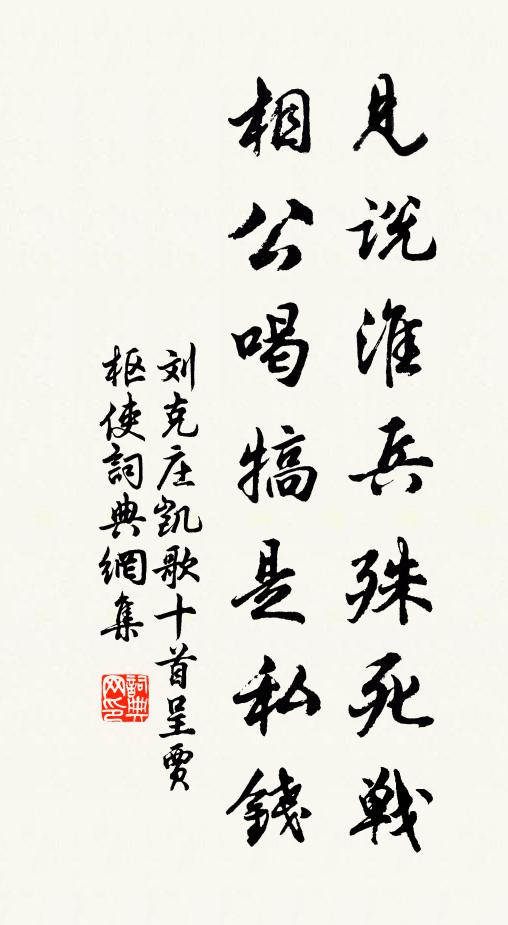 见说淮兵殊死戦
相公喝犒是私錢
刘克庄凯歌十首呈贾
枢使詞典網集
詞典
网印